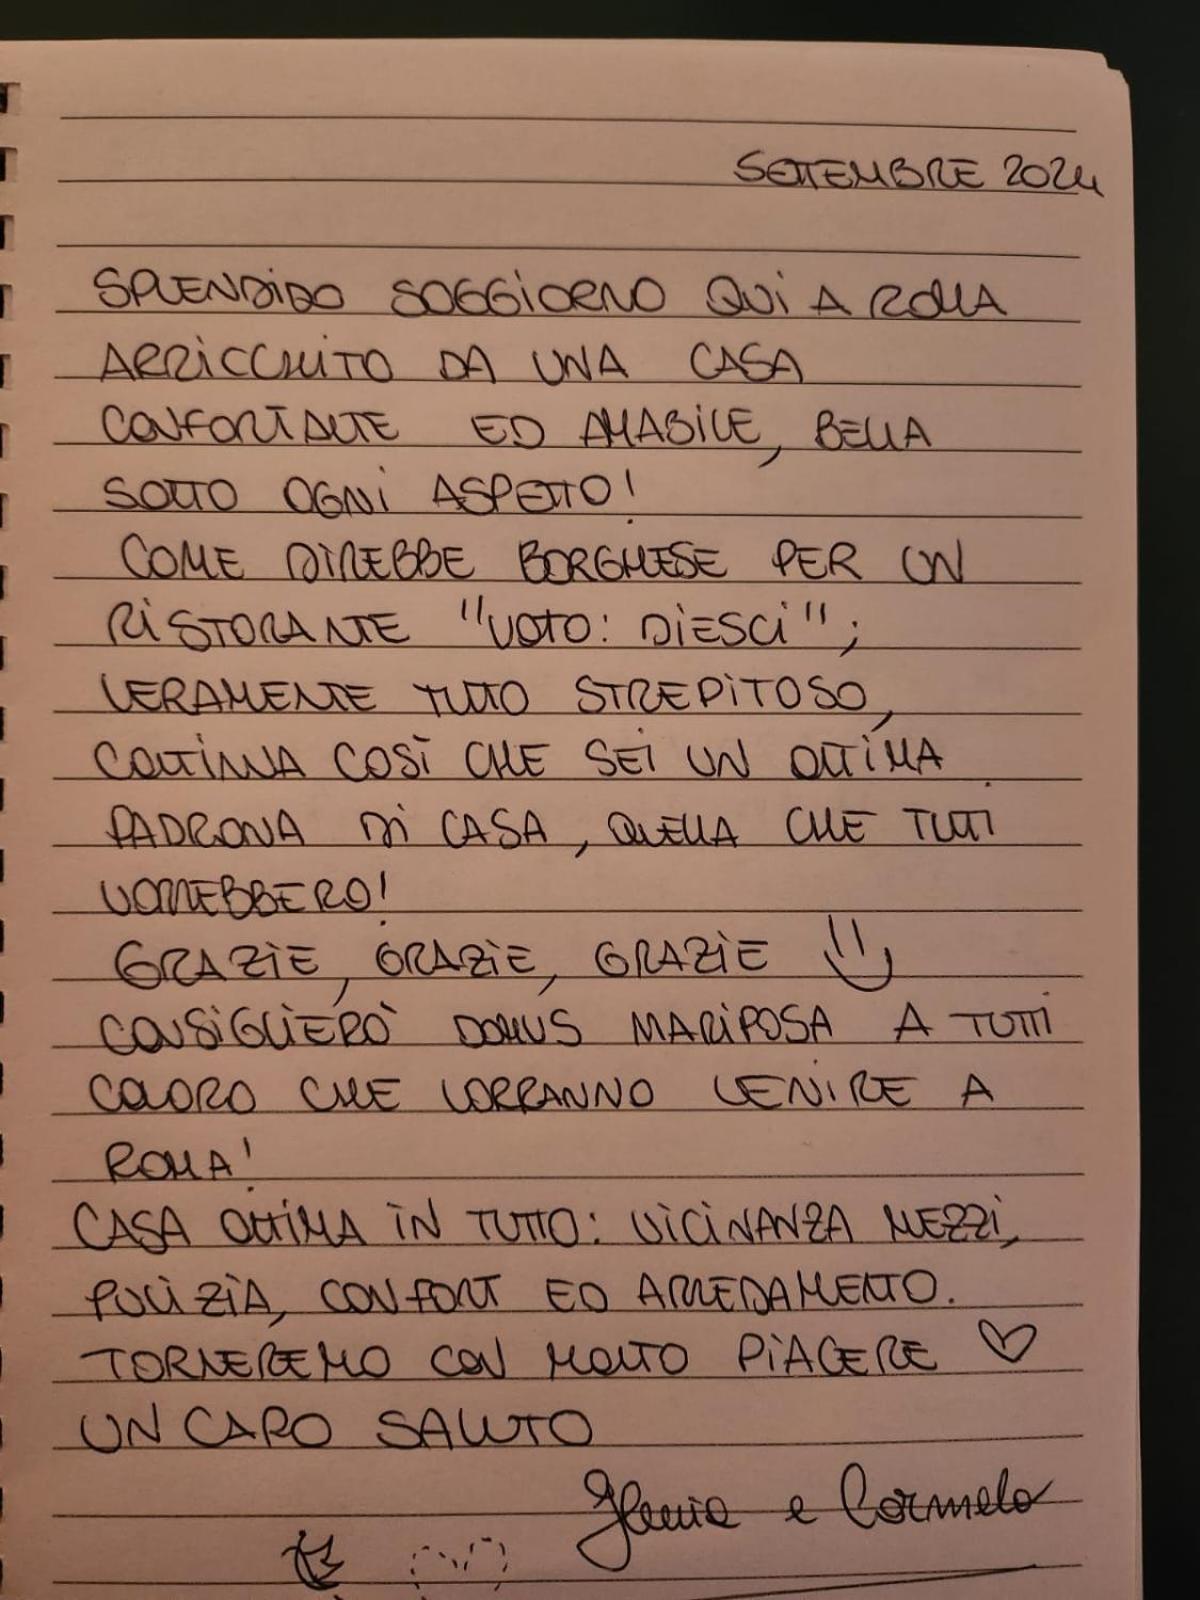 SETTEMBRE 2024
SPLENDIDO SOGGIORNO QUI A ROMA
ARRICCHITO DA UNA CASA
CONFORTANTE ED AMABILE, BELLA
SOTTO OGNI ASPETTO!
COME DIREBBE BORGHESE PER UN
RISTORANTE "VOTO: DIESCI";
VERAMENTE TUTTO STREPITOSO,
CONTINUA COSÌ CHE SEI UN OTTIMA
PADRONA DI CASA, QUELLA CHE TUTTI
VORREBBERO!
GRAZIE, GRAZIE, GRAZIE
CONSIGLIERÒ DOMUS MARIPOSA A TUTTI
COLORO CHE VORRANNO VENIRE A
ROMA!
CASA OTTIMA IN TUTTO: VICINANZA MEZZI,
PULIZIA, CONFORT ED ARREDAMENTO.
TORNEREMO CON MOLTO PIACERE ♡
UN CARO SALUTO
Ylenia e Carmelo